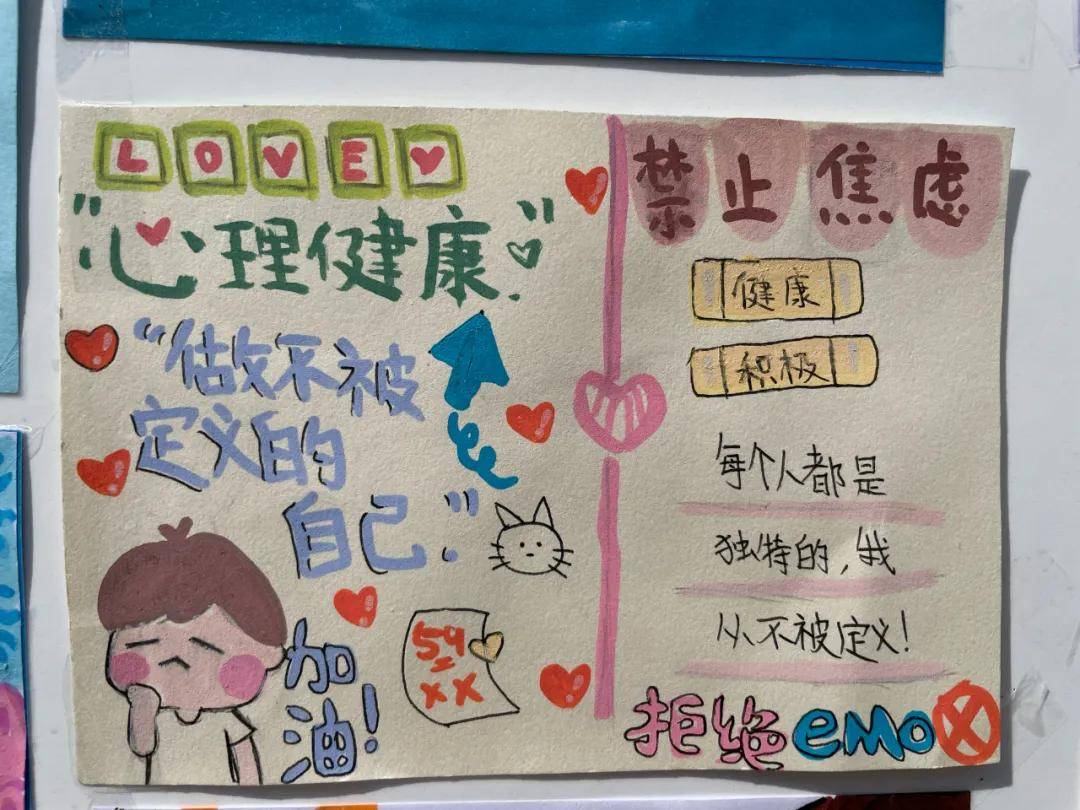 LOVE
"心理健康."
"做不被
定义的
自己."
加
油!
59
XX
禁止焦虑
健康
积极
每个人都是
独特的,我
从不被定义!
拒绝emo